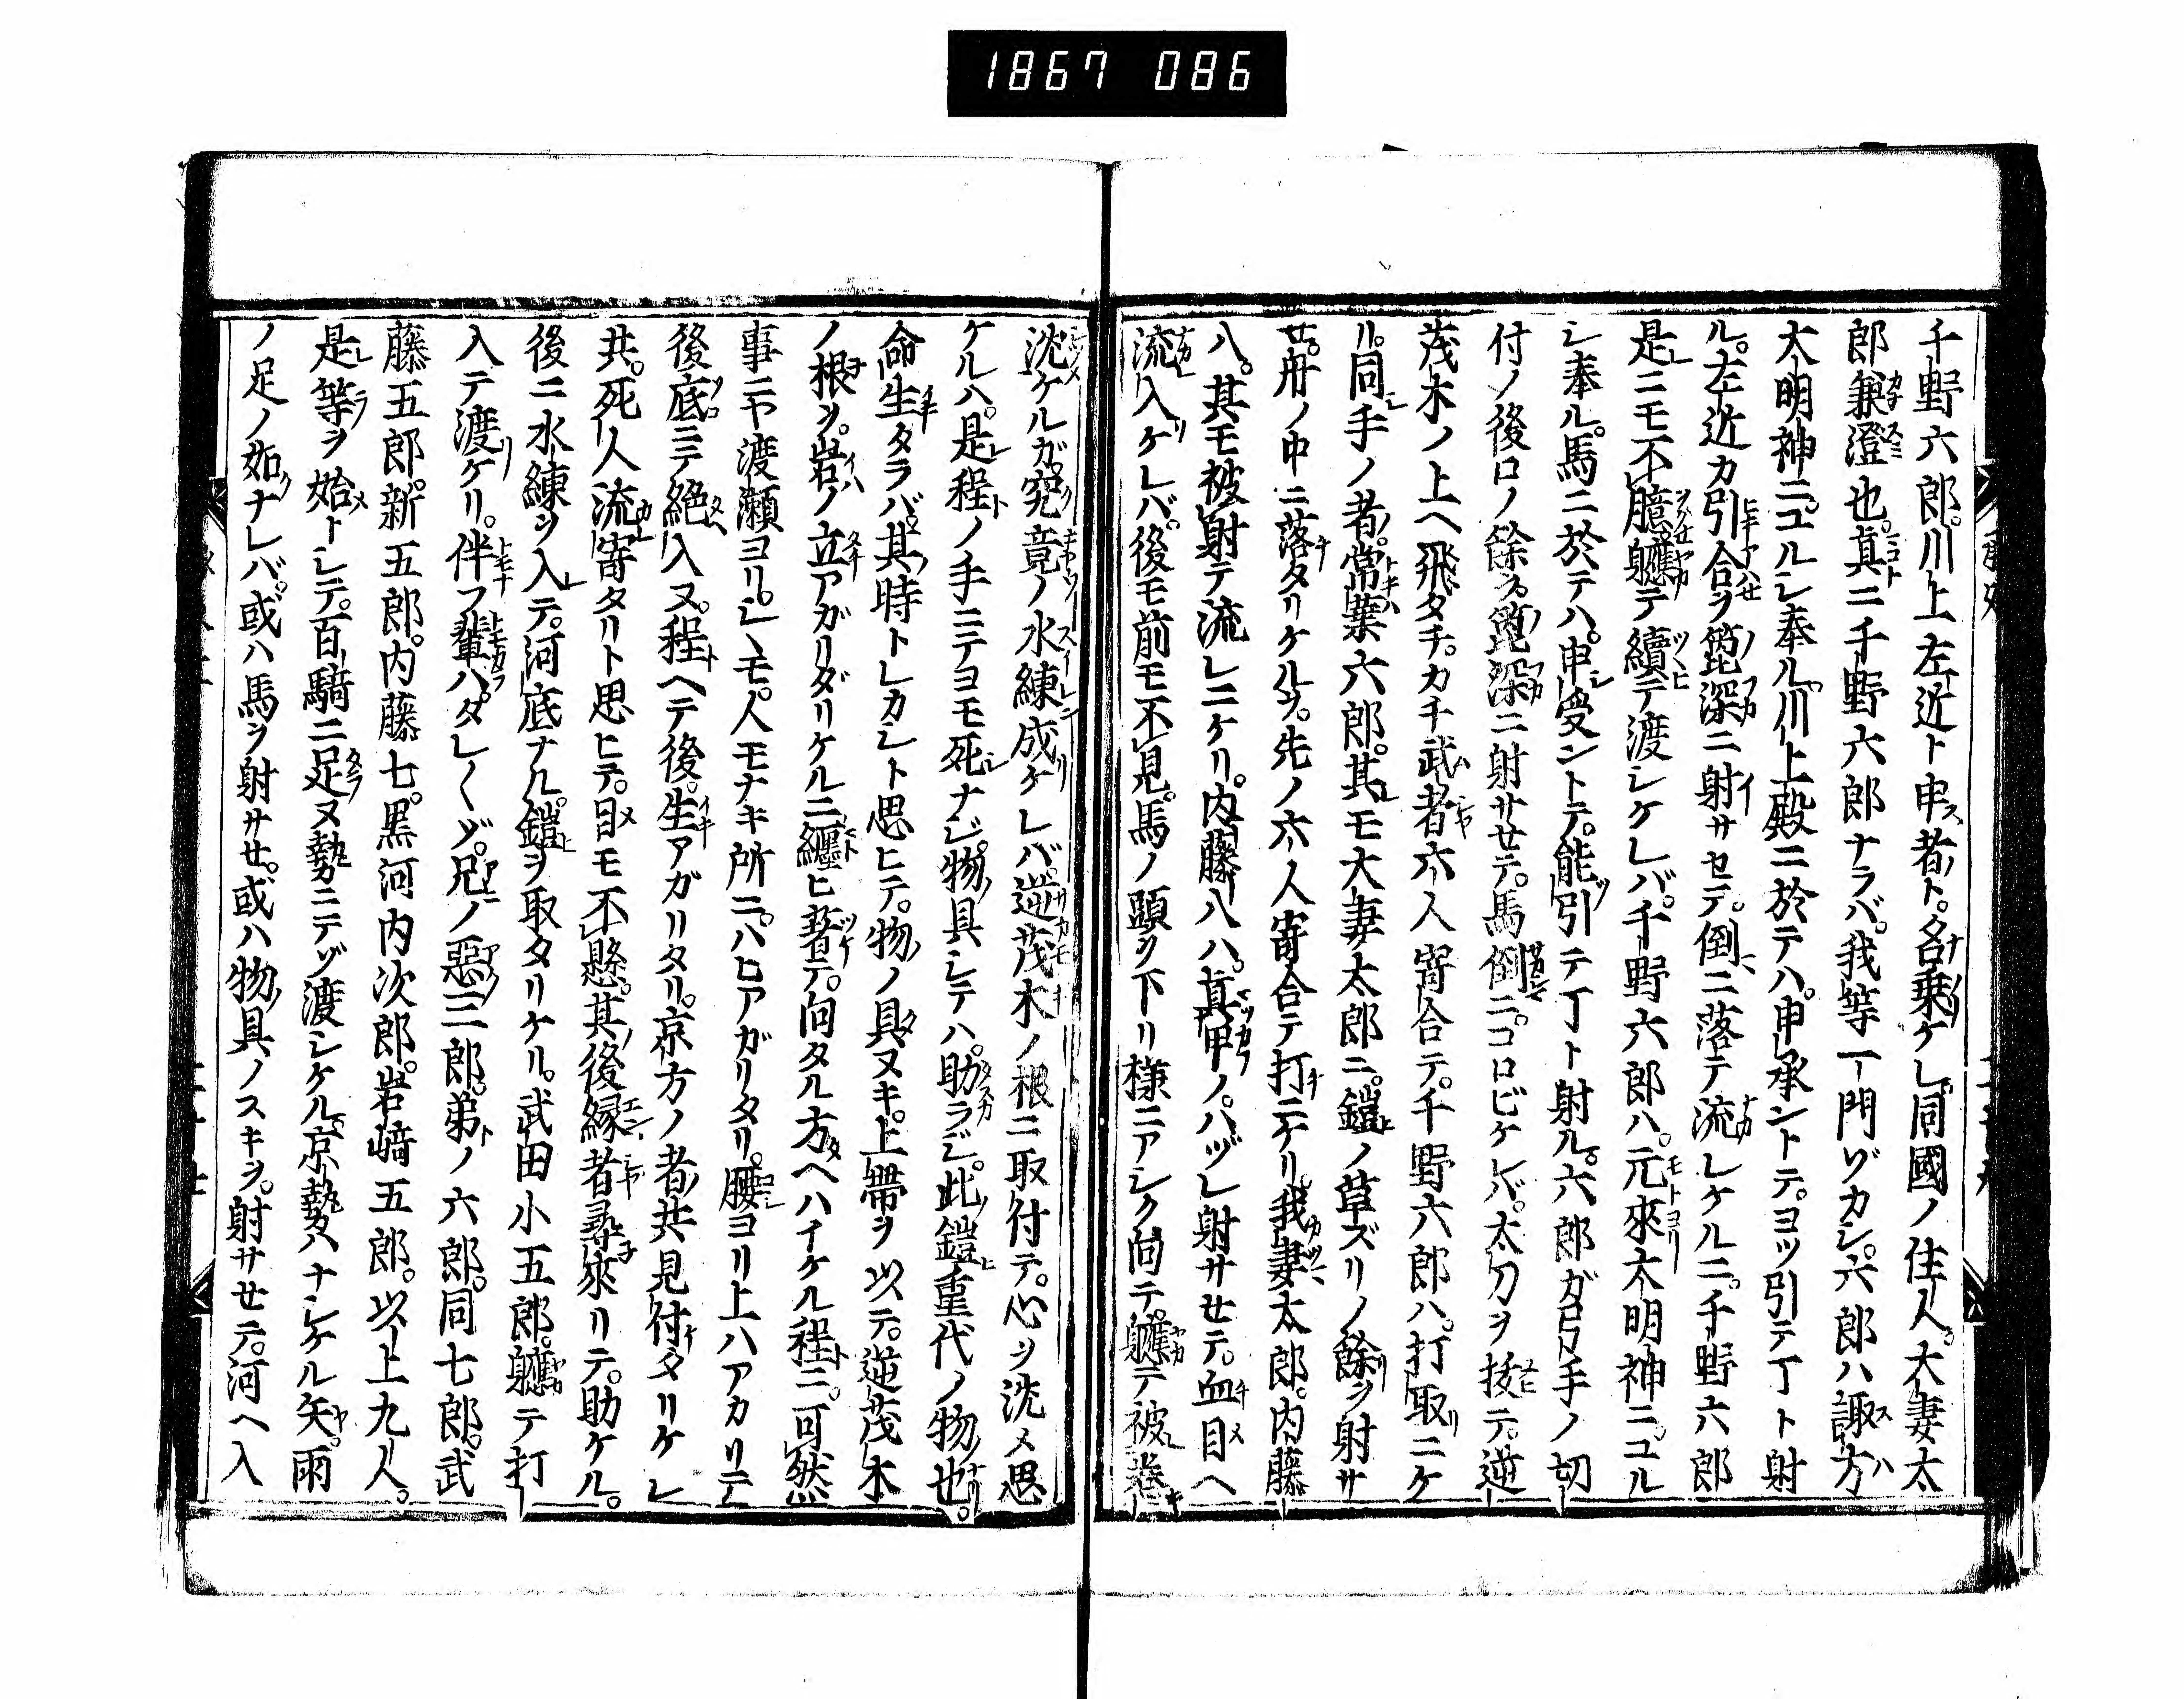 1867 086
千野六郎。川上左近ト申者ト。名乗ケレ。同國ノ住人。大妻太
郎兼澄也。真ニ千野六郎ナラバ。我等一門ゾカシ。六郎ハ諏方
大明神ニユルシ奉ル。川上殿ニ於テハ。申承ントテ。ヨツ引テ丁ト射
ル。左近カ引合ヲ箆深ニ射サセテ。倒ニ落テ流レケルニ。千野六郎
是ニモ不臆軈テ續テ渡シケレバ。千野六郎ハ。元來大明神ニユル
シ奉ル。馬ニ於テハ。申受ントテ。能引テ丁ト射ル。六郎ガ弓手ノ切
付ノ後ロノ餘ヲ箆深ニ射サセテ。馬倒ニコロビケレバ。太刀ヲ拔テ。逆
茂木ノ上ヘ飛タチ。カチ武者六人寄合テ。千野六郎ハ。打取ニケ
リ。同手ノ者。常葉六郎。其モ大妻太郎ニ。鎧ノ草ズリノ餘ヲ射サ
セ。舟ノ中ニ落タリケルヲ。先ノ六人寄合テ打ニケリ。我妻太郎。内藤
八。其モ被射テ流レニケリ。内藤八ハ。真甲ノ。ハヅレ射サセテ。血目ヘ
流入ケレバ。後モ前モ不見。馬ノ頭ヲ下リ様ニアシク向テ。軈テ被卷
沈ケルガ。究竟ノ水練成ケレバ。逆茂木ノ根ニ取付テ。心ヲ沈メ思
ケルハ。是程ノ手ニテヨモ死ナジ。物具シテハ。助ラジ。此鎧重代ノ物也。
命生タラバ。其時トレカシト思ヒテ。物ノ具ヌキ。上帶ヲ以テ。逆茂木
ノ根ヲ。岩ノ立アガリダリケルニ纏ヒ著テ。向タル方ヘハイケル程ニ。可然
事ニヤ渡瀬ヨリシ、モ。人モナキ所ニ。ハヒアガリタリ。腰ヨリ上ハアカリテ
後底ニテ絶入ヌ。程ヘテ後。生アガリタリ。京方ノ者共見付タリケレ
共。死人流寄タリト思ヒテ。目モ不懸。其後縁者尋來リテ。助ケル。
後ニ水練ヲ入テ。河底ナル。鎧ヲ取タリケル。武田小五郎。軈テ打
入テ渡ケリ。伴フ輩ハ。タレ〳〵ゾ。兄ノ悪三郎。弟ノ六郎。同七郎。武
藤五郎。新五郎。内藤七。黒河内次郎。岩﨑五郎。以上九人。
是等ヲ始トシテ。百騎ニ足ヌ勢ニテゾ渡シケル。京勢ハナシケル矢。雨
ノ足ノ如ナレバ。或ハ馬ヲ射サセ。或ハ物具ノスキヲ。射サセテ。河ヘ入